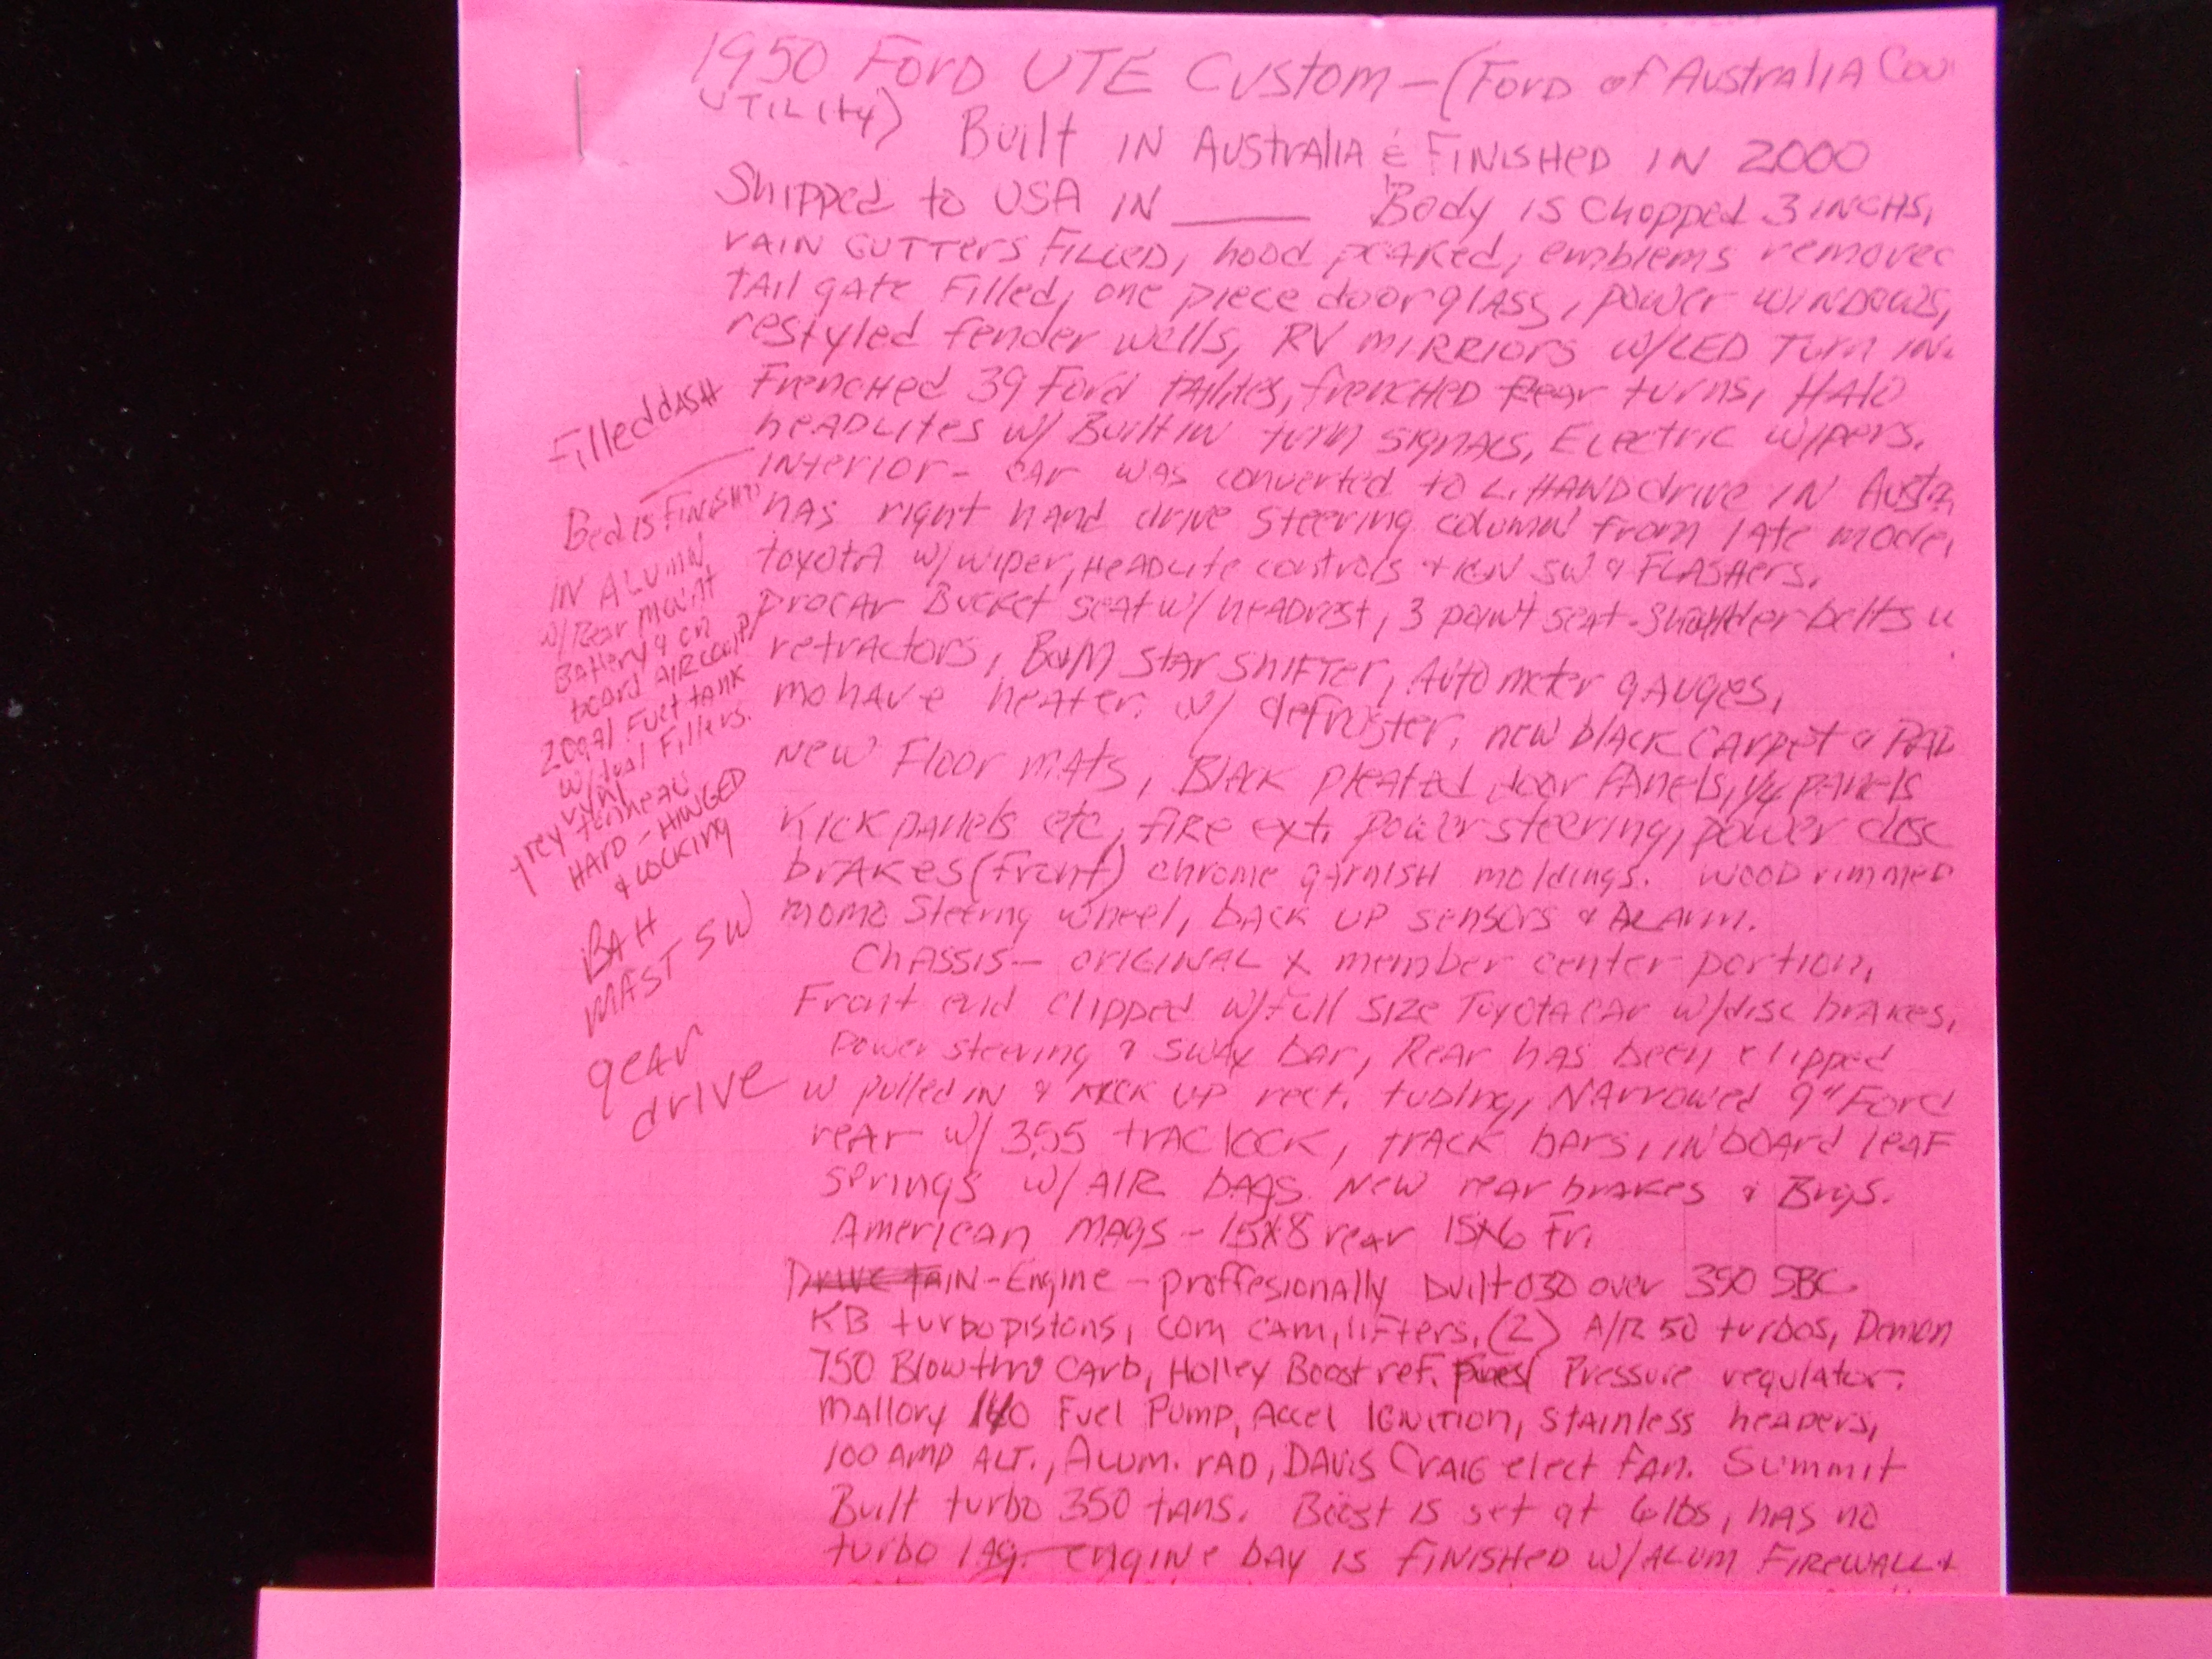 1950 Ford UTE Custom - (Ford of Australia Cou
UTILITY) Built IN Australia & FINISHED IN 2000
Shipped to USA IN ______ Body is Chopped 3 INCHS,
rain GUTTErs FILLED, hood peaked, emblems remove
TAil gate Filled, one piece door glass, power WINDOWS,
restyled fender wells, RV MIRRIORS w/LED Turn IN.
Frenched 39 Ford tAilites, frencHed rear turns, HAlo
heADLites w/ Built in turn signals, Electric wipers.
INterior - car was converted to L. HAND drive IN Aust
has right hand drive steering column from late model
toyota w/wiper, HeADLite controls + IGN SW & FLASHers.
procar Bucket seat w/ headrest, 3 point seat-shoulder belts w
retractors, B&M Star SHIFTer, Auto meter gauges,
mohave heater. w/ defroster, new black carpet & PAD
New Floor mats, Black pleated door PAnels, 1/4 panels
Kick panels etc, fire ext. power steering, power disc
brakes (front) chrome garnish moldings. wood rimmed
momo Steerng wheel, back up sensors & ALArm.
Chassis - original x member center portion,
Front end clipped w/full size Toyota car w/disc brakes,
Power steering & sway bar, Rear has been clipped
w pulled in & kick up rect. tubing, Narrowed 9" Ford
rear w/ 3.55 trac lock, track bars, inboard leaf
springs w/ AIR bags. New rear brakes & Brgs.
American mags - 15x8 rear 15x6 Fr.
Drive tAIN-Engine - proffesionally built 030 over 350 SBC
KB turbo pistons, com cam, lifters, (2) A/R 50 turbos, Demon
750 Blow thru carb, Holley Boost ref. Pressure regulator.
Mallory 140 Fuel Pump, Accel Ignition, stainless headers,
100 AMP ALT., Alum. rad, Davis Craig elect fan. Summit
Built turbo 350 tans. Boost is set at 6 lbs, has no
turbo lag. engine bay is finished w/alum firewall &
Filled dash
Bed is Finished
IN ALUMN
w/Rear mount
Battery & on
board AIR comp
20 gal Fuel tank
w/dual Fillers.
grey vynl
tonneau
HARD - HINGED
& Locking
BAH
MAST SW
gear
drive